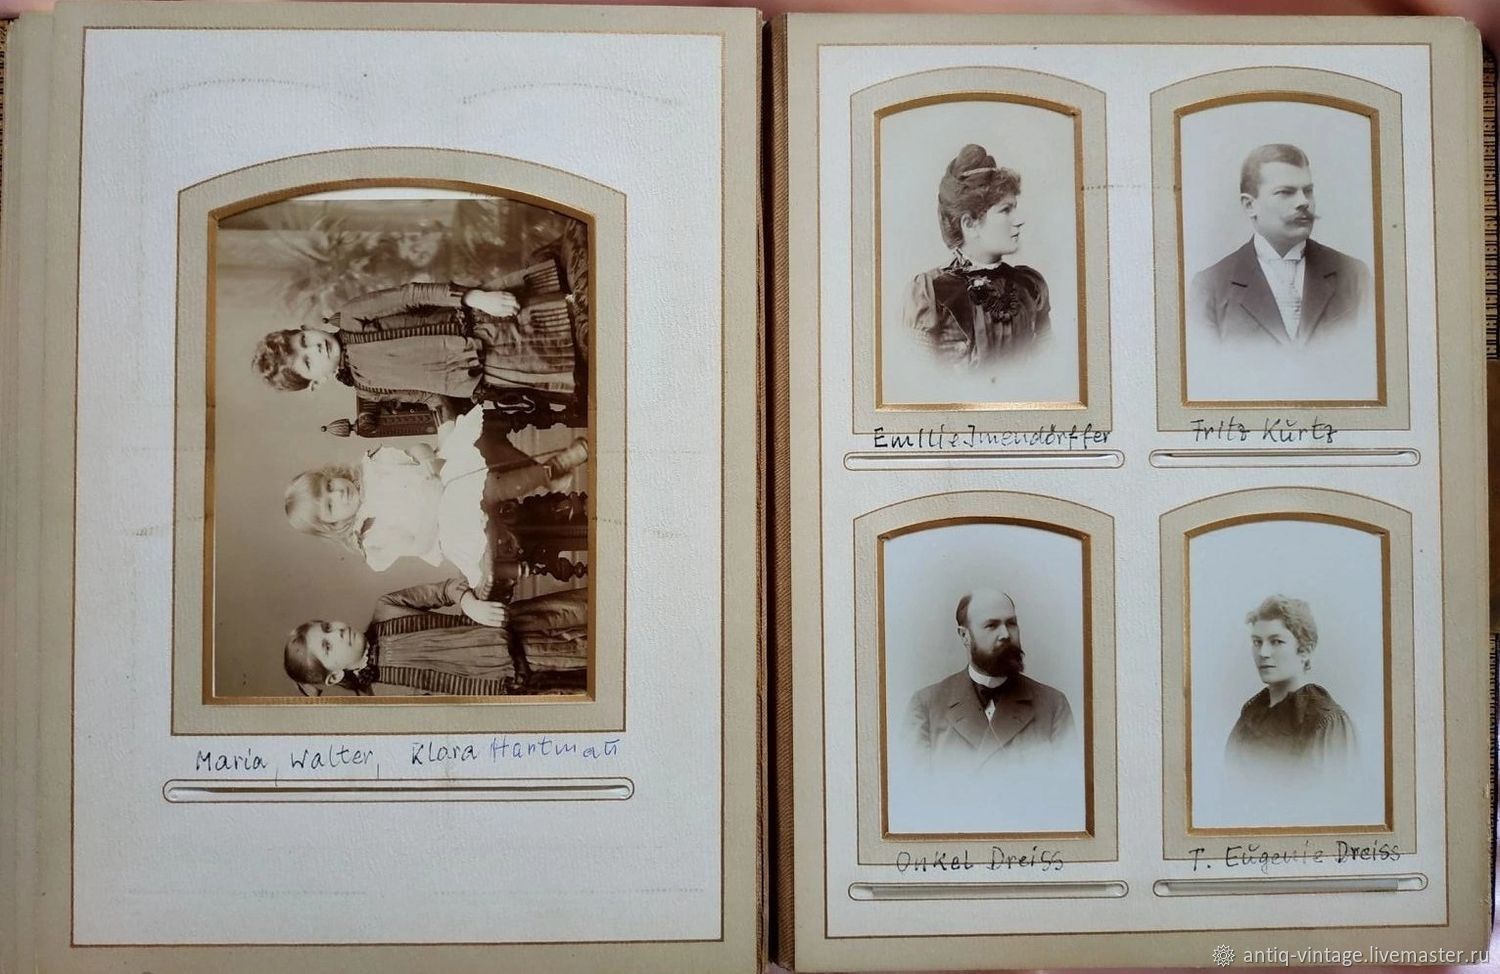 Maria, Walter, Klara Hartmañ
Emilie Imendörffer
Fritz Kŭrtz
Onkel Dreiss
T. Eŭgenie Dreiss
antiq-vintage.livemaster.ru